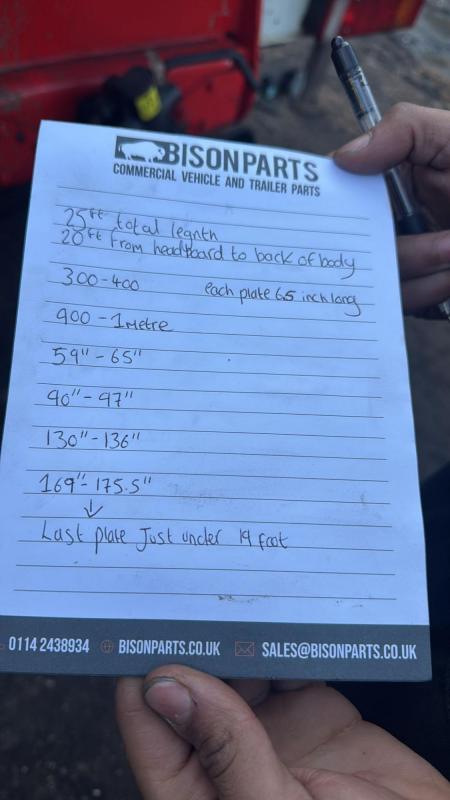 BISONPARTS
COMMERCIAL VEHICLE AND TRAILER PARTS
25ft total legnth
20ft from headboard to back of body
300-400 each plate 6.5 inch long
900 - 1 Metre
59" - 65"
90" - 97"
130" - 136"
169" - 175.5"
↓
Last plate Just under 19 foot
0114 2438934 BISONPARTS.CO.UK SALES@BISONPARTS.CO.UK